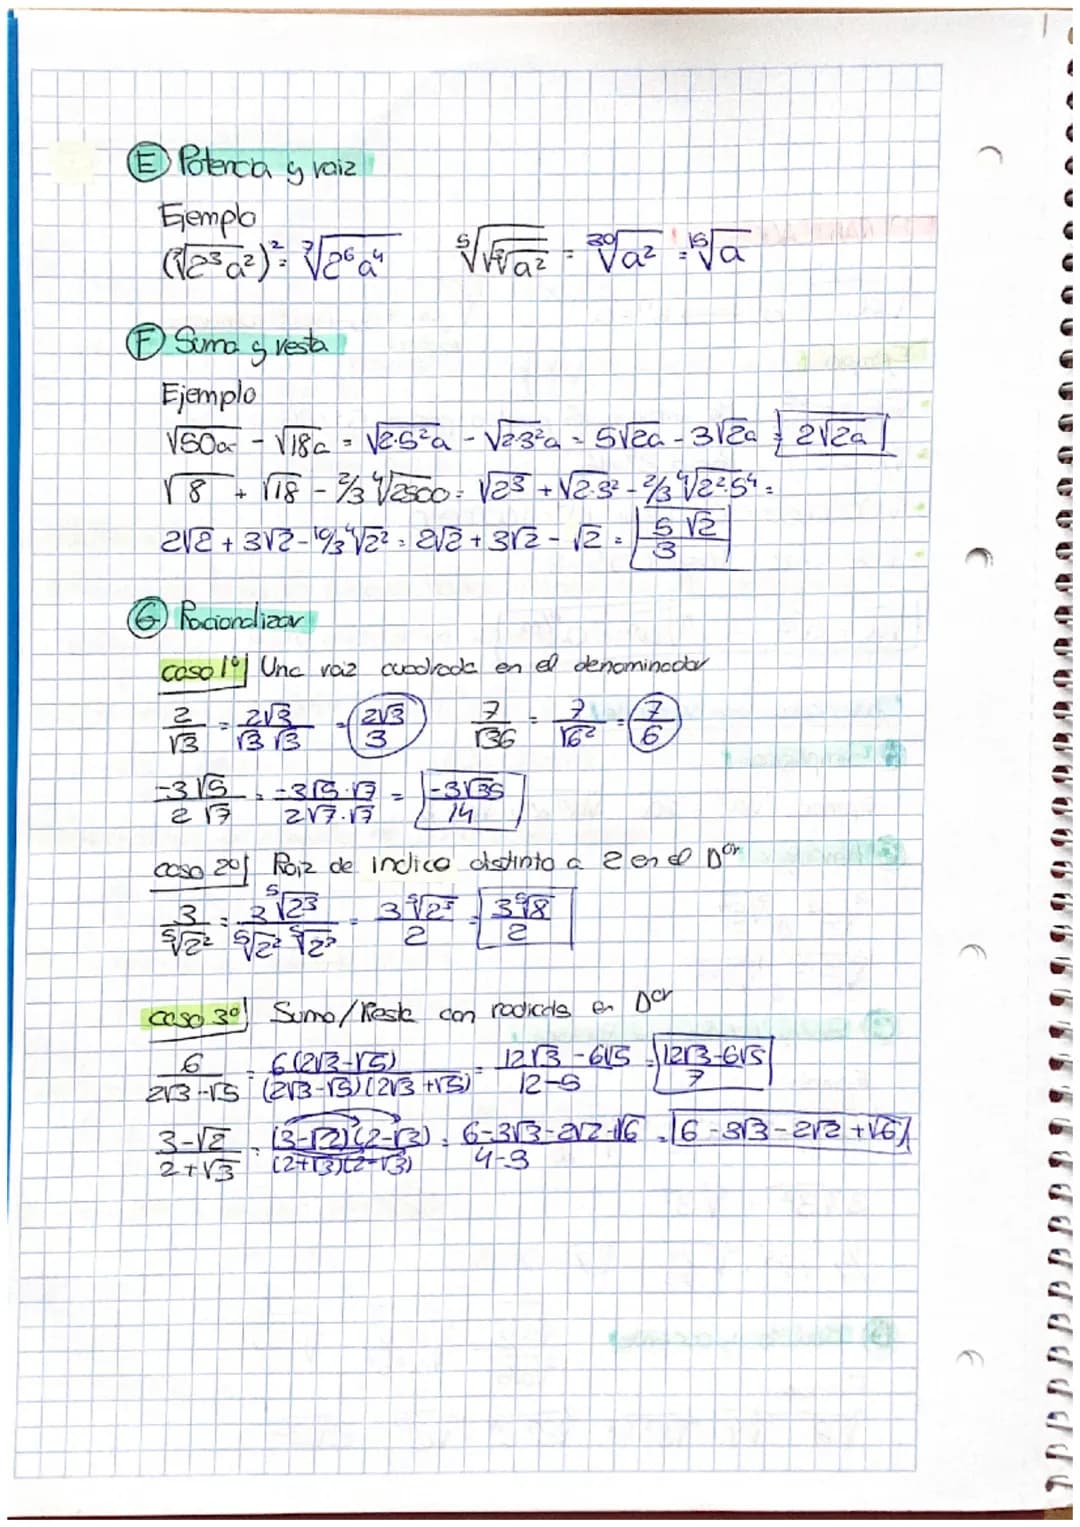 E Potencia y raiz
Ejemplo
(⁷√2³a²)² = ⁷√2⁶a⁴   ⁵√√³√a² = ³⁰√a² = ¹⁵√a
F Suma y resta
Ejemplo
√50a - √18a = √2·5²a - √2·3²a = 5√2a - 3√2a = 2√2a
√8 + √18 - 2/3 ⁴√2500 = √2³ + √2·3² - 2/3 ⁴√2²·5⁴ =
2√2 + 3√2 - 10/3 ⁴√2² = 2√2 + 3√2 - √2 = 5√2/3
G Racionalizar
caso 1º Una raiz cuadrada en el denominador
2/√3 = 2√3/√3 √3 = 2√3/3   7/√36 = 7/√6² = 7/6
-3√5/2√7 = -3√5·√7/2√7·√7 = -3√35/14
caso 2º Raiz de indice distinto a 2 en el Dor
3/⁵√2² = 3 ⁵√2³/⁵√2² ⁵√2³ = 3 ⁵√2³/2 = 3 ⁵√8/2
caso 3º Suma/Resta con radicales en Dor
6/2√3-√5 = 6(2√3-√5)/(2√3-√5)(2√3+√5) = 12√3-6√5/12-5 = 12√3-6√5/7
3-√2/2+√3 = (3-√2)(2-√3)/(2+√3)(2-√3) = 6-3√3-2√2+√6/4-3 = 6-3√3-2√2+√6